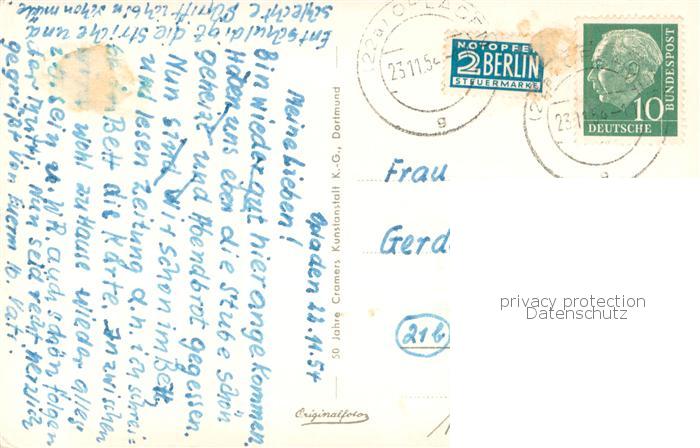 Opladen 22.11.54
Meine Lieben!
Bin wieder gut hier angekommen.
Haben uns eben die Stube schön
geheizt und Abendbrot gegessen.
Nun sind wir schon im Bett
und lesen Zeitung d.h. ich schrei-
be im Bett die Karte. Inzwischen
wird wohl zu Hause wieder alles
zu sein u. W.R. auch schön folgen
der Mutti. Nun seid recht herzlich
gegrüßt von Eurem lb. Vati.
Entschuldigt die Striche und
schlechte Schrift ich bin schon müde
50 Jahre Cramers Kunstanstalt K.-G., Dortmund
Originalfoto
(22a) OPLADEN
23.11.54
g
NOTOPFER
2 BERLIN
STEUERMARKE
23.11.54
g
10
DEUTSCHE
BUNDESPOST
Frau
Gerd
21b
privacy protection
Datenschutz